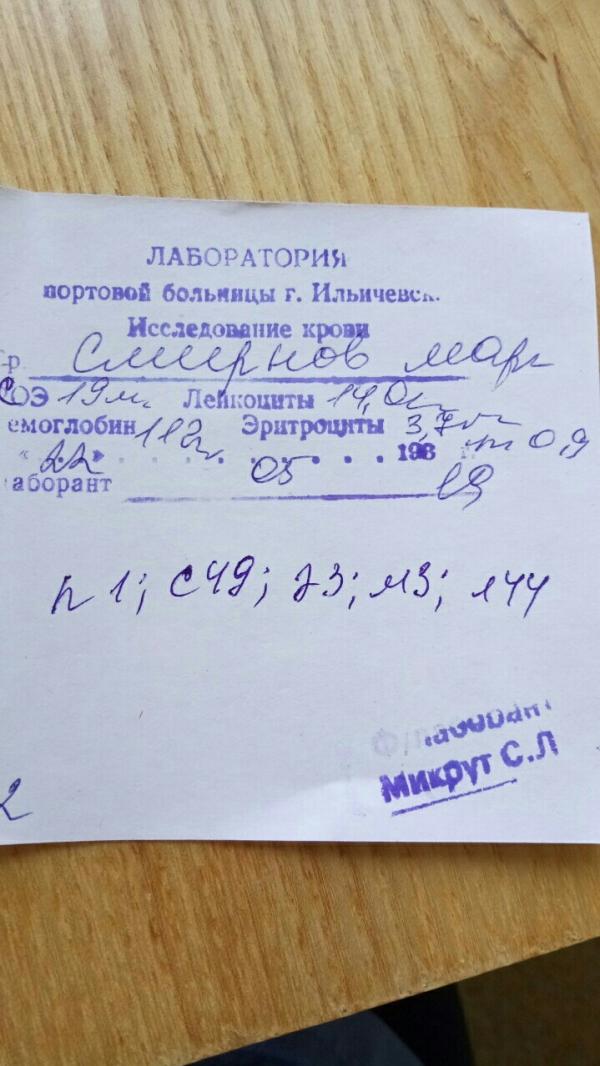 ЛАБОРАТОРИЯ
портовой больницы г. Ильичевск.
Исследование крови
Гр. Смирнов Марк
СОЭ 19 м. Лейкоциты 14,0 г
емоглобин 112 г. Эритроциты 3,7 т
« 22 » . . . 05 . . . . 198 г. цп 0,9
аборант 19
п 1; с 49; э 3; м 3; л 44
Ф/лаборант
Микрут С.Л
2